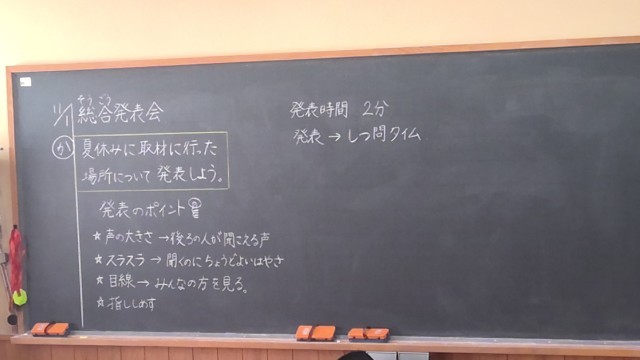 11/1 総合発表会
そうごう
か 夏休みに取材に行った
場所について発表しよう。
発表のポイント
☆声の大きさ→後ろの人が聞こえる声
☆スラスラ→聞くのにちょうどよいはやさ
☆目線→みんなの方を見る。
☆指ししめす
発表時間 2分
発表→しつ問タイム